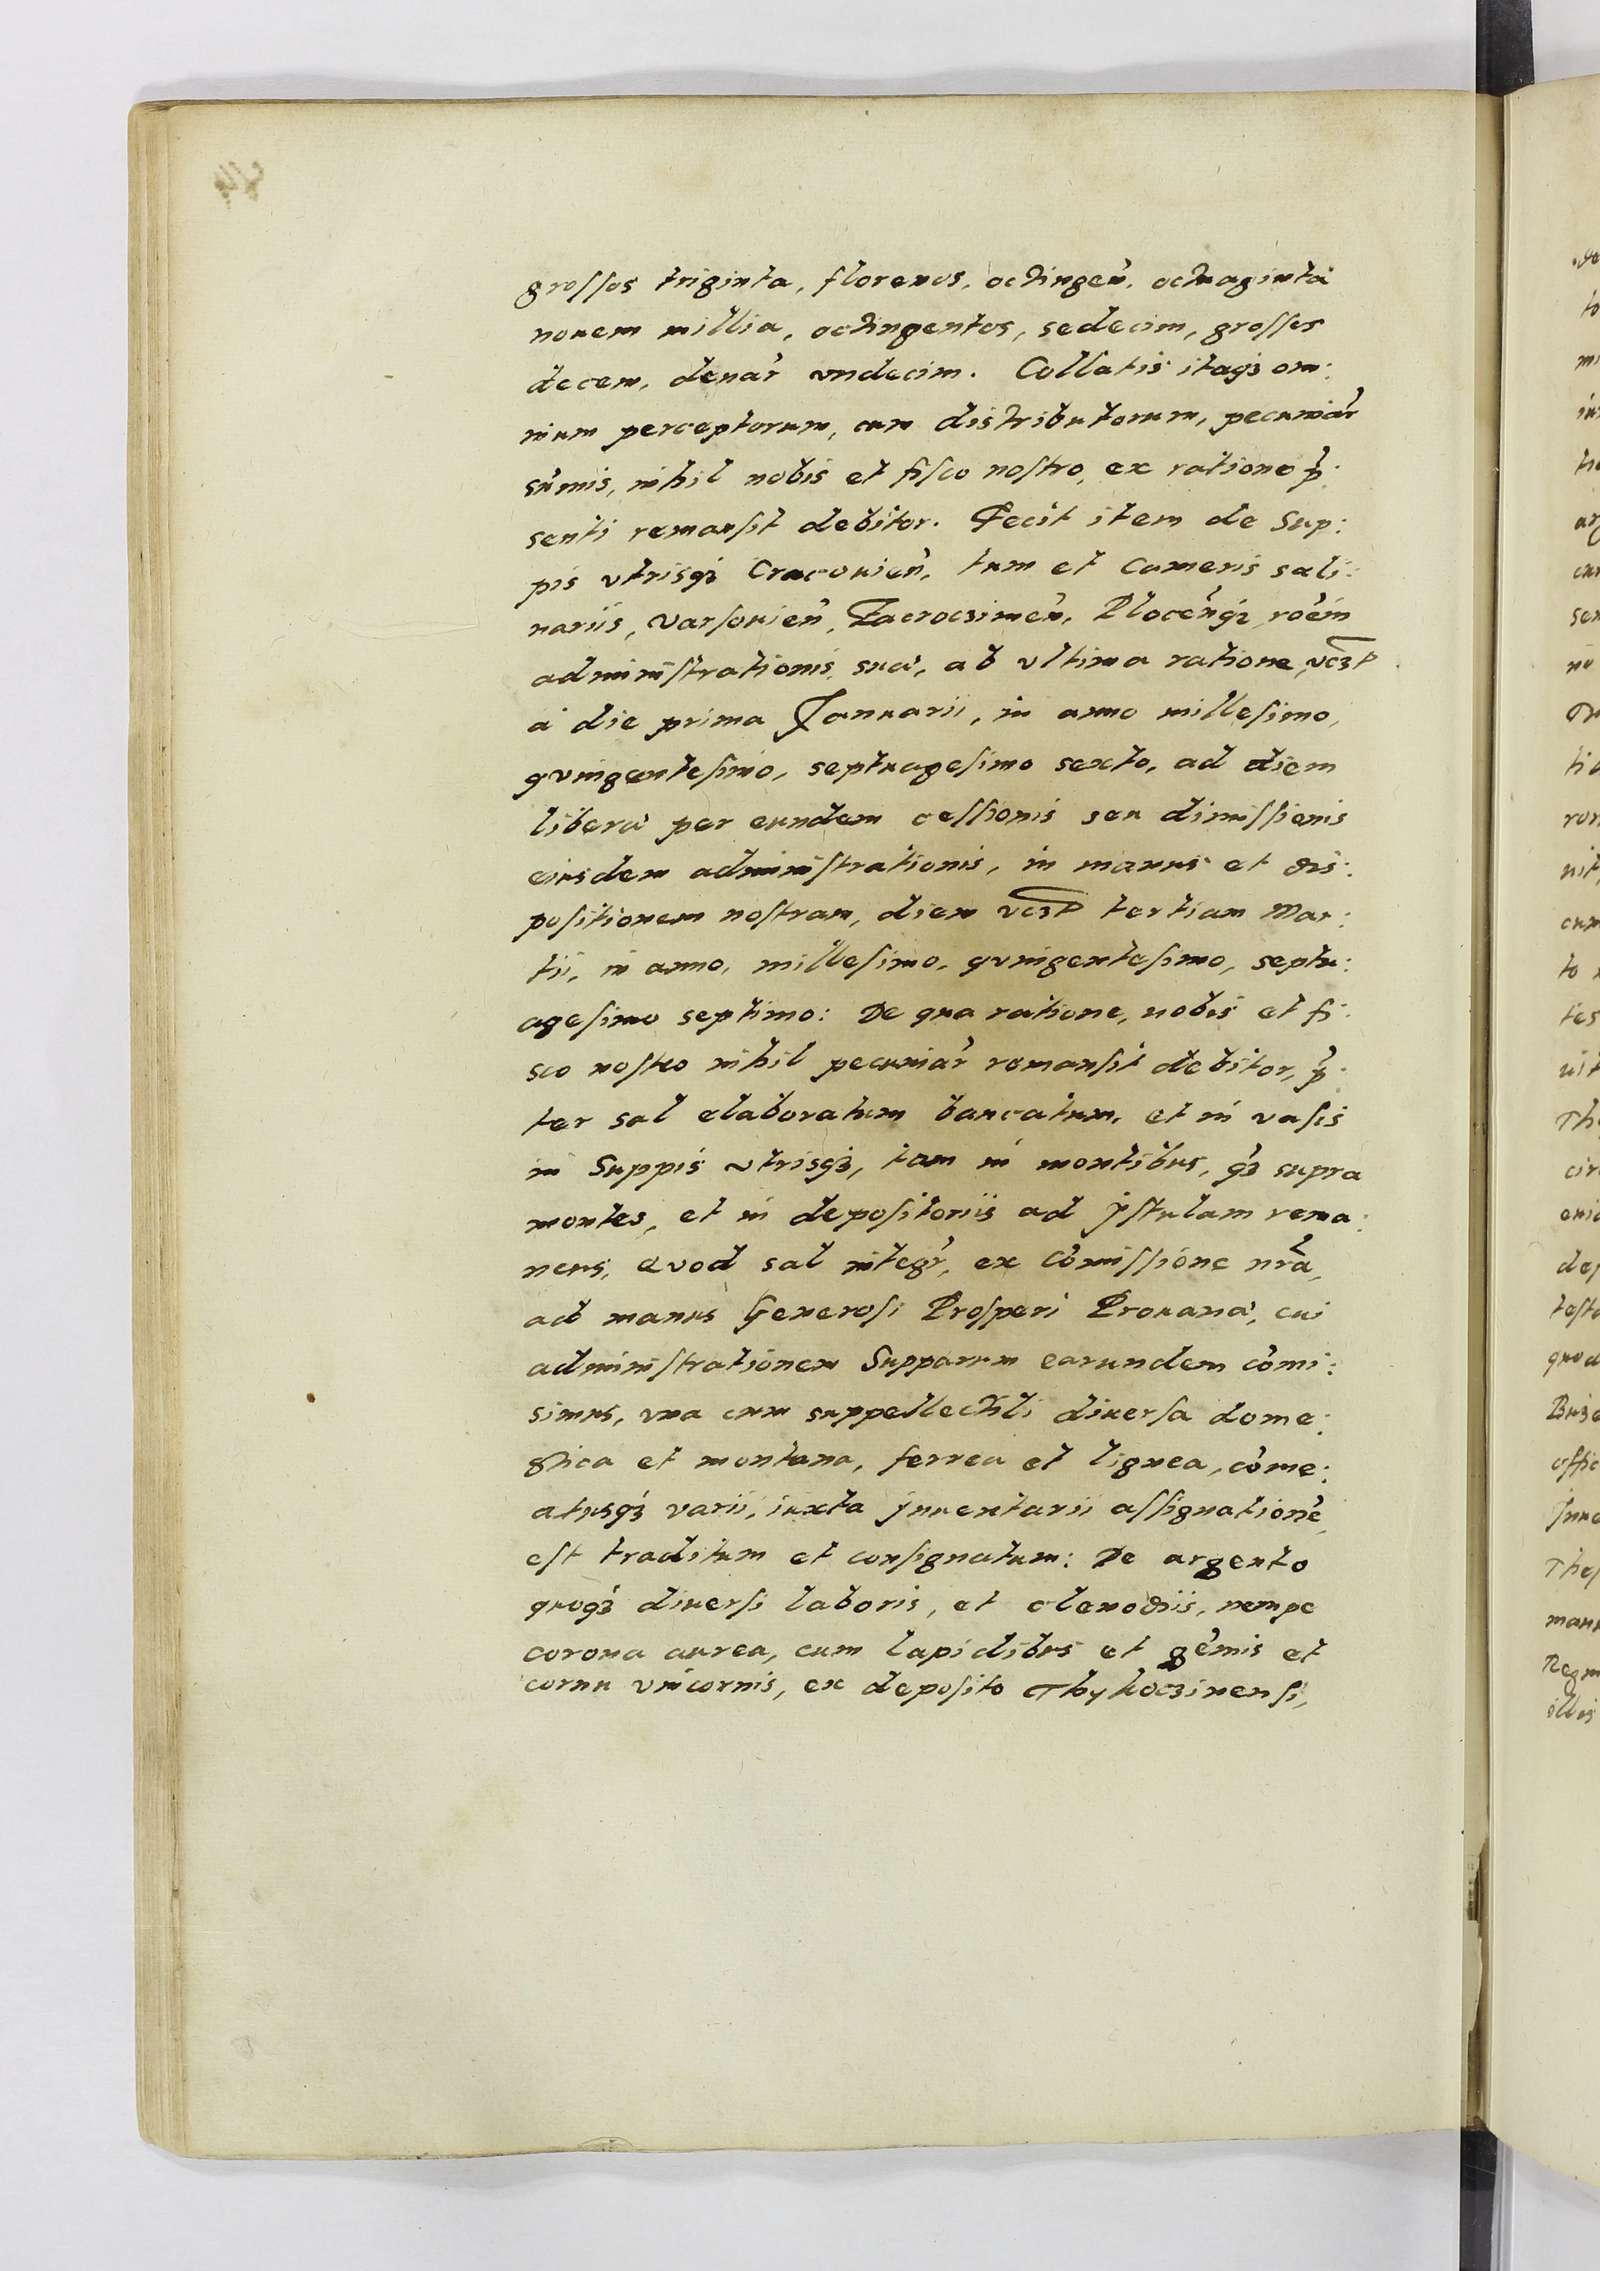 grossos triginta, florenos, octingeñ, octuaginta
nouem millia, octingentos, sedecim, grossos
decem, denar̃ vndecim. Collatis itaqȝ om:
nium perceptorum, cum distributorum, pecuniar̃
sum̃is, nihil nobis et fisco nostro, ex ratione p̃:
senti remansit debitor. Fecit item de Sup:
pis vtrisqȝ Cracouieñ, tum et Cameris sali:
nariis, Varsouieñ, Zacroczimeñ, Ploceñqȝ, roẽm
administrationis suæ, ab vltima ratione, vcȝt
a die prima Januarii, in anno millesimo,
qvingentesimo, septuagesimo sexto, ad diem
liberæ per eundem cessionis seu dimissionis
eiusdem administrationis, in manus et dis:
positionem nostram, diem vcȝt tertiam Mar:
tii, in anno, millesimo, qvingentesimo, septu:
agesimo septimo: De qua ratione, nobis et fi:
sco nostro nihil pecuniar̃ remansit debitor, p̃:
ter sal elaboratum bancatum, et in vasis
in Suppis vtrisqȝ, tam in montibus, qȝ supra
montes, et in depositoriis ad Jstulam rema:
nens, Qvod sal integr̃, ex Com̃issione nrã,
ad manus Generosi Prosperi Prouana, cui
administrationem Supparum earundem com̃i:
simus, vna cum suppellectili diuersa dome:
stica et montana, ferrea et lignea, com̃e:
atusqȝ varii, iuxta Jnuentarii assignationẽ,
est traditum et consignatum: De argento
quoqȝ diuersi laboris, et clenodiis, nempe
corona aurea, cum lapidibus et gem̃is et
cornu vnicornis, ex deposito Thykoczinensi,